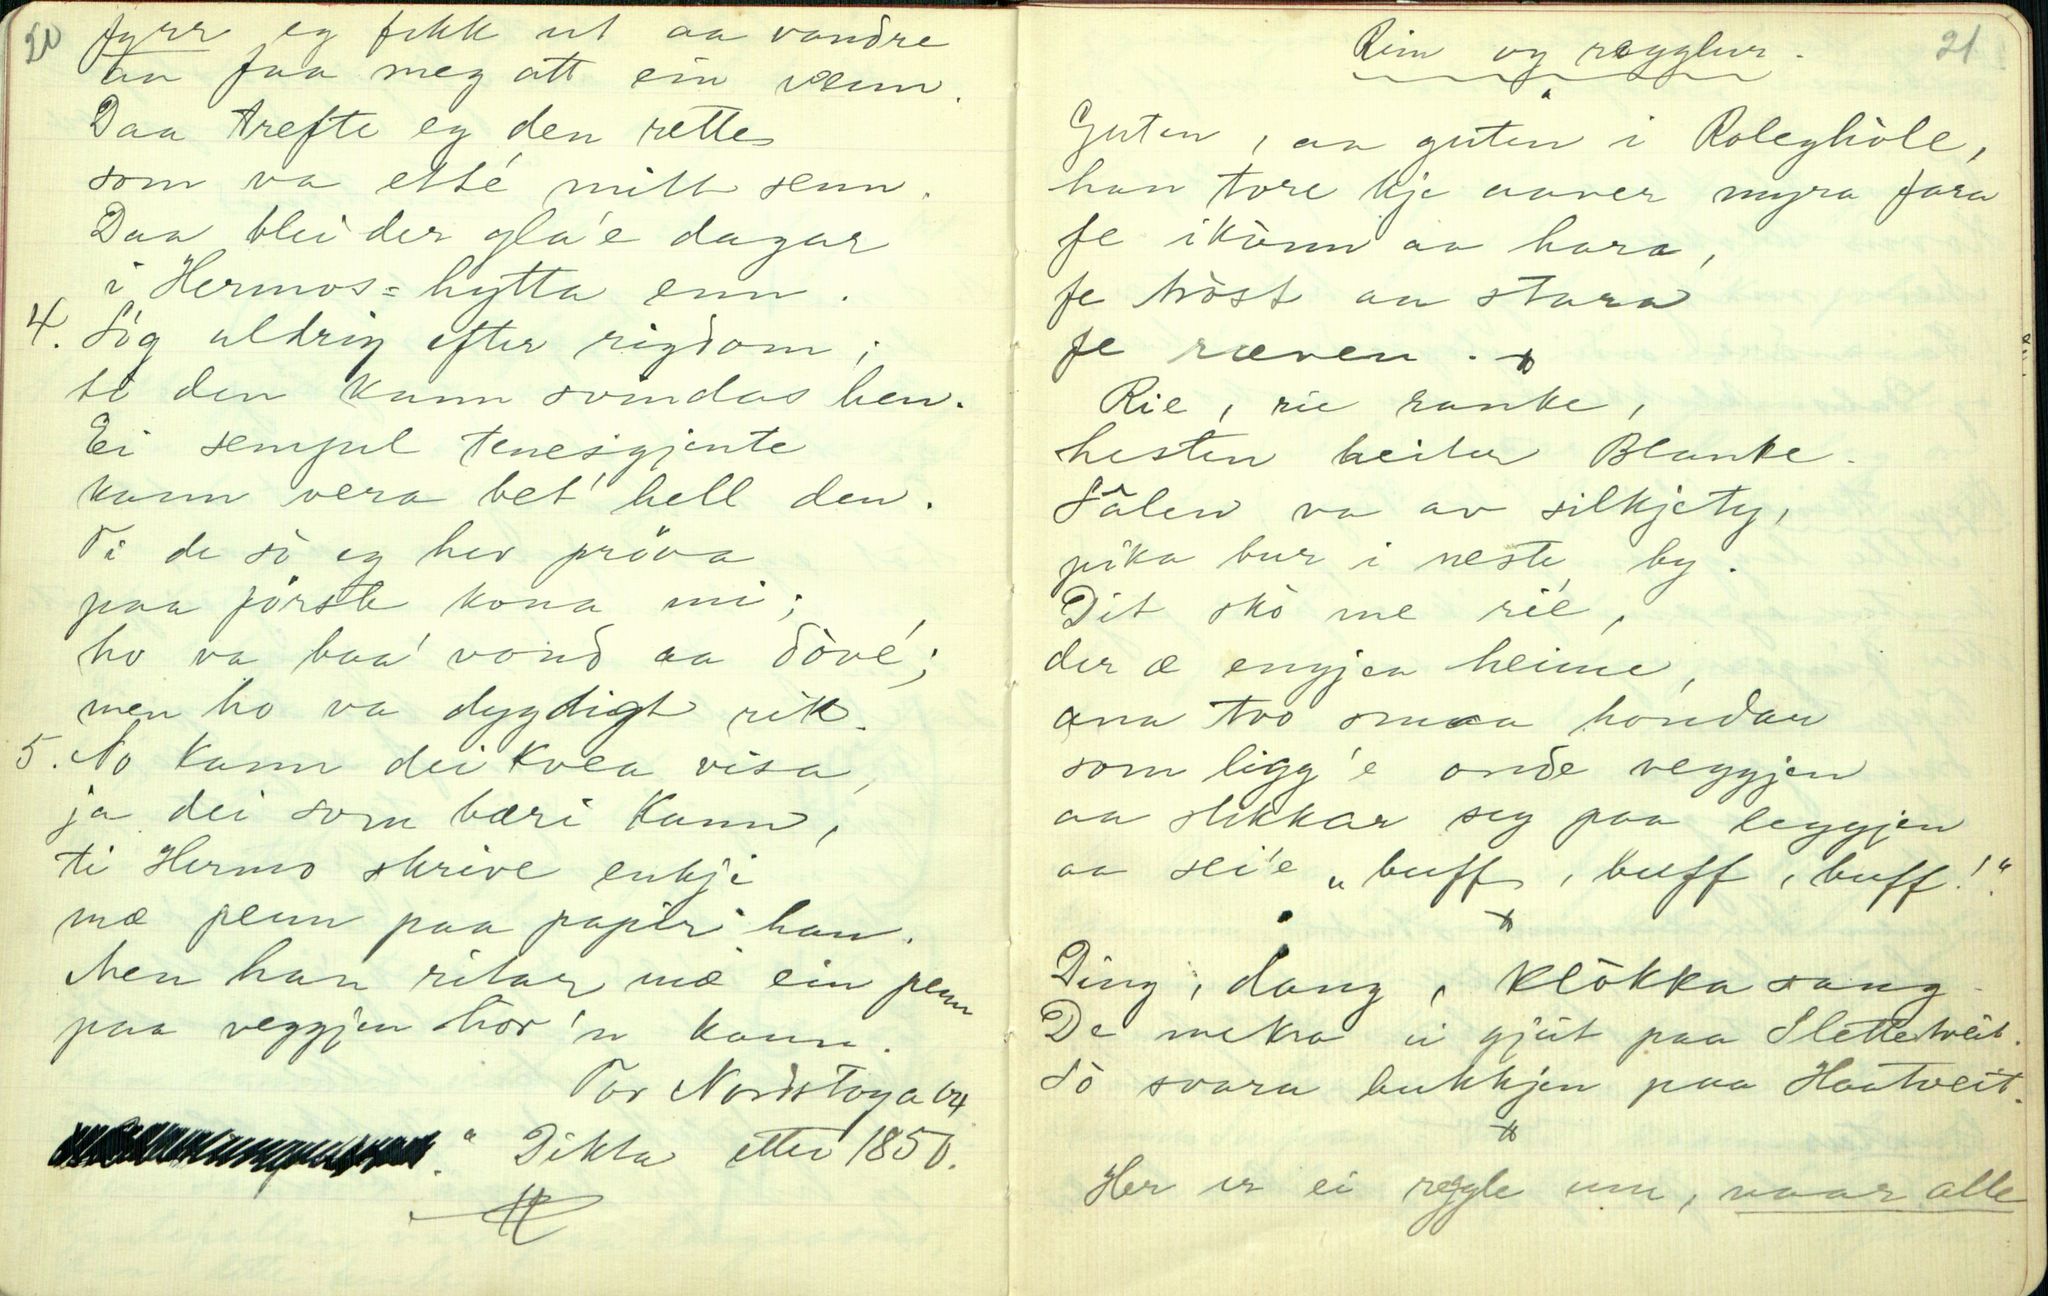 20
fyrr eg fekk ut aa vandre
aa faa meg att ein venn.
Daa trefte eg den rette
som va etté mitt senn.
Daa blei der gla'e dagar
i Hermos=hytta enn.
4. Søg aldrig efter rigdom;
ti den kann svindas hen.
Ei sempul tenesgjente
kann vera bet' hell den.
Ti de so eg hev prøva
paa fórste kona mi;
ho va baa' vond aa dòvé;
men ho va dygdigt rik.
5. No kann dei kvea visa,
ja dei som bæri kann,
ti Hermo skrive enkji
mæ penn paa papir han.
Men han ritar mæ ein penn
paa veggjen hor 'n kann.
Tor Nordstoga 04
" Dikta etter 1850.
21
Rim og regglur.
Guten, aa guten i Roleghòle,
han tore kje aaver myra fara
fe ikònn aa hara,
fe tròst aa stara
fe ræven.
Rie, rie ranke,
hesten heitar Blanke.
Sålen va av silkjety,
pika bur i neste by.
Dit skò me rié,
der æ engjen heime,
ana tvo smaa hondar
som ligg'e onde veggjen
aa slikkar seg paa leggjen
aa sei'e „buff, buff, buff!"
Ding, dang, klòkka sang
De mekra ei gjeit paa Slettetveit.
Sò svara bukkjen paa Haatveit.
Her er ei reggle um, naar alle